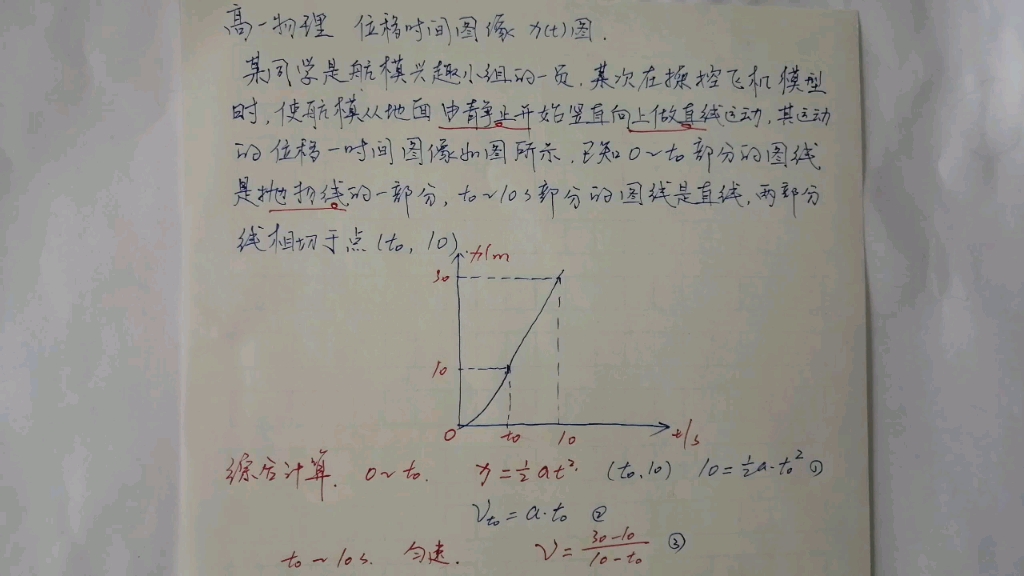 高一物理 位移时间图像 x(t)图.
某同学是航模兴趣小组的一员,某次在操控飞机模型
时,使航模从地面由静止开始竖直向上做直线运动,其运动
的位移-时间图像如图所示,已知0~t₀部分的图线
是抛物线的一部分,t₀~10s部分的图线是直线,两部分
线相切于点(t₀, 10)
x/m
30
10
0 t₀ 10 t/s
综合计算. 0~t₀. x=½at². (t₀,10) 10=½a·t₀² ①
Vt₀=a·t₀ ②
t₀~10s. 匀速. V=(30-10)/(10-t₀) ③